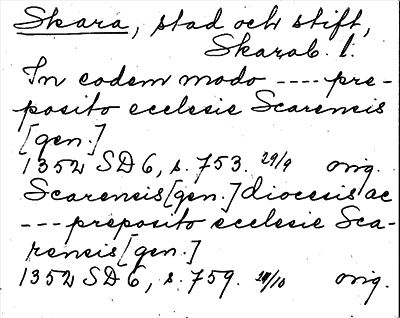 Skara, stad och stift,
Skarab. l.
In eodem modo ---- pre-
posito ecclesie Scarensis
[gen.]
1352 SD 6, s. 753. 29/9 orig.
Scarensis [gen.] diocesis ac
--- preposito ecclesie Sca-
rensis [gen.]
1352 SD 6, s. 759. /10 orig.